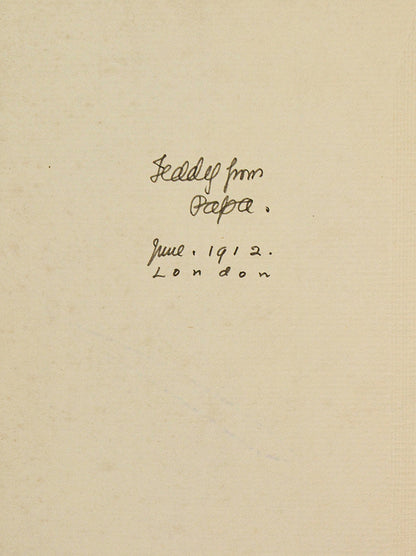 Teddy from
Papa.
June. 1912.
London